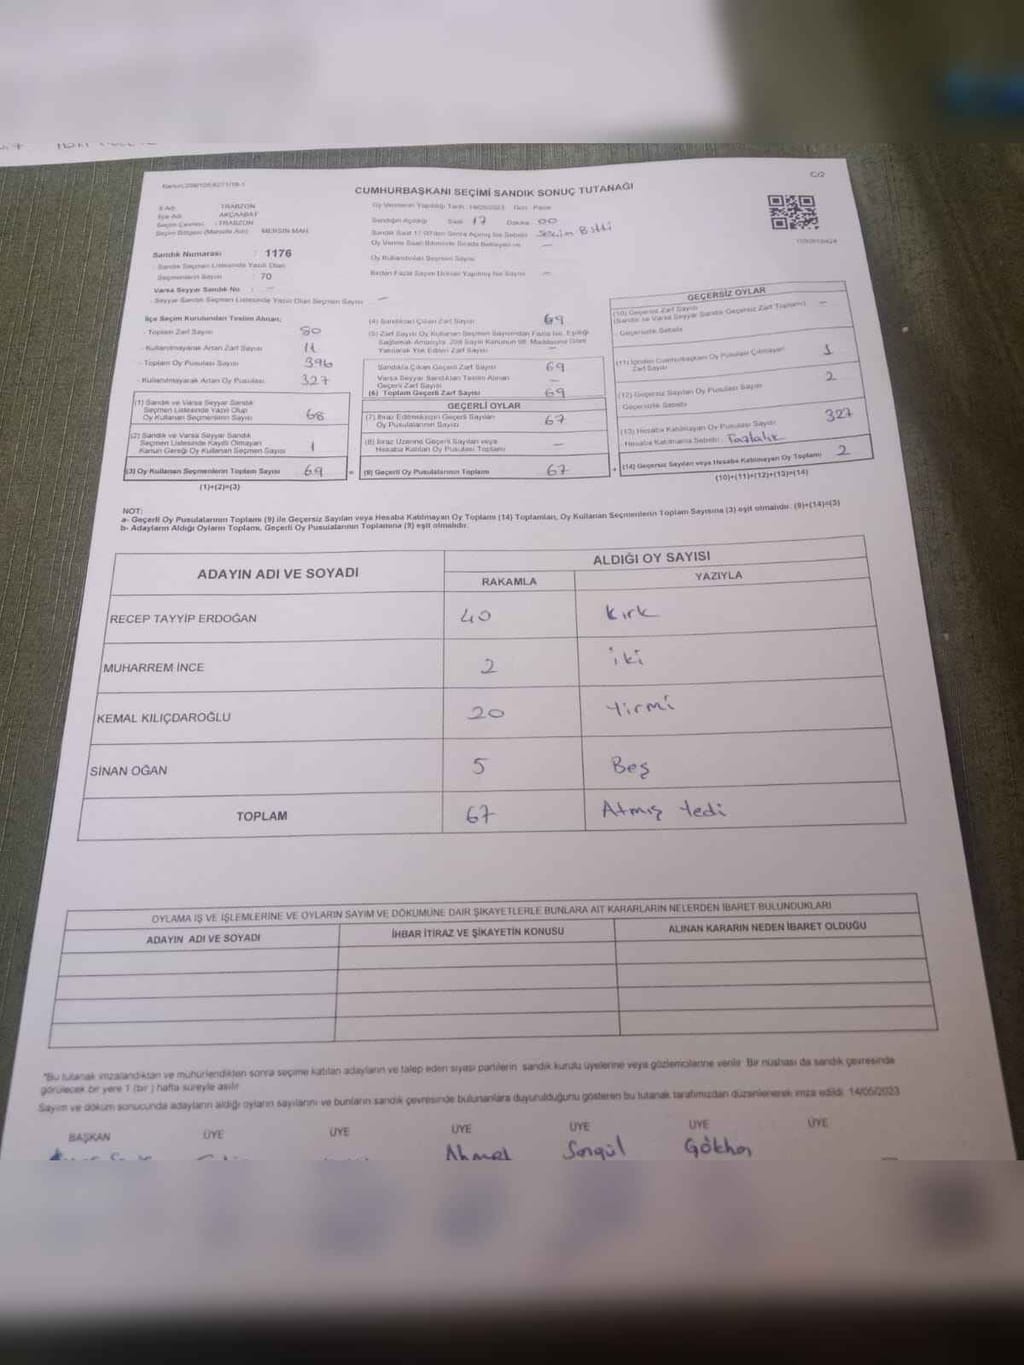 C/2
CUMHURBAŞKANI SEÇİMİ SANDIK SONUÇ TUTANAĞI
İl Adı : TRABZON
İlçe Adı : AKÇAABAT
Seçim Çevresi : TRABZON
Seçim Bölgesi (Mahalle Adı) : MERSİN MAH.
Sandık Numarası : 1176
Sandık Seçmen Listesinde Yazılı Olan
Seçmenlerin Sayısı : 70
Varsa Seyyar Sandık No : -
Seyyar Sandık Seçmen Listesinde Yazılı Olan Seçmen Sayısı -
Oy Vermenin Yapıldığı Tarih : 14/05/2023 Gün : Pazar
Sandığın Açıldığı Saat 17 Dakika 00
Sandık Saat 17.00'den Sonra Açılmış İse Sebebi Seçim Bitti
Oy Verme Saati Bitiminde Sırada Bekleyen ve -
Oy Kullandırılan Seçmen Sayısı
Birden Fazla Sayım Döküm Yapılmış İse Sayısı -
İlçe Seçim Kurulundan Teslim Alınan;
- Toplam Zarf Sayısı 80
- Kullanılmayarak Artan Zarf Sayısı 11
- Toplam Oy Pusulası Sayısı 396
- Kullanılmayarak Artan Oy Pusulası 327
(1) Sandık ve Varsa Seyyar Sandık
Seçmen Listesinde Yazılı Olup
Oy Kullanan Seçmen Sayısı 68
(2) Sandık ve Varsa Seyyar Sandık
Seçmen Listesinde Kayıtlı Olmayan
Kanun Gereği Oy Kullanan Seçmen Sayısı 1
(3) Oy Kullanan Seçmenlerin Toplam Sayısı 69
(1)+(2)=(3)
(4) Sandıktan Çıkan Zarf Sayısı 69
(5) Zarf Sayısı Oy Kullanan Seçmen Sayısından Fazla İse, Eşitliği
Sağlamak Amacıyla, 298 Sayılı Kanunun 98. Maddesine Göre
Yakılarak Yok Edilen Zarf Sayısı -
Sandıkta Çıkan Geçerli Zarf Sayısı 69
Varsa Seyyar Sandıktan Teslim Alınan
Geçerli Zarf Sayısı -
(6) Toplam Geçerli Zarf Sayısı 69
GEÇERLİ OYLAR
(7) İtiraz Edilmeksizin Geçerli Sayılan
Oy Pusulalarının Sayısı 67
(8) İtiraz Üzerine Geçerli Sayılan veya
Hesaba Katılan Oy Pusulası Toplamı -
= (9) Geçerli Oy Pusulalarının Toplamı 67
GEÇERSİZ OYLAR
(10) Geçersiz Zarf Sayısı
(Sandık ve Varsa Seyyar Sandık Geçersiz Zarf Toplamı) -
Geçersizlik Sebebi
(11) İçinden Cumhurbaşkanı Oy Pusulası Çıkmayan
Zarf Sayısı 1
(12) Geçersiz Sayılan Oy Pusulası Sayısı 2
Geçersizlik Sebebi
(13) Hesaba Katılmayan Oy Pusulası Sayısı 327
Hesaba Katılmama Sebebi : Fazlalık
+ (14) Geçersiz Sayılan veya Hesaba Katılmayan Oy Toplamı 2
(10)+(11)+(12)+(13)=(14)
NOT:
a- Geçerli Oy Pusulalarının Toplamı (9) ile Geçersiz Sayılan veya Hesaba Katılmayan Oy Toplamı (14) Toplamları, Oy Kullanan Seçmenlerin Toplam Sayısına (3) eşit olmalıdır. (9)+(14)=(3)
b- Adayların Aldığı Oyların Toplamı, Geçerli Oy Pusulalarının Toplamına (9) eşit olmalıdır.
ADAYIN ADI VE SOYADI
ALDIĞI OY SAYISI
RAKAMLA YAZIYLA
RECEP TAYYİP ERDOĞAN 40 Kırk
MUHARREM İNCE 2 iki
KEMAL KILIÇDAROĞLU 20 Yirmi
SİNAN OĞAN 5 Beş
TOPLAM 67 Atmış Yedi
OYLAMA İŞ VE İŞLEMLERİNE VE OYLARIN SAYIM VE DÖKÜMÜNE DAİR ŞİKAYETLERLE BUNLARA AİT KARARLARIN NELERDEN İBARET BULUNDUKLARI
ADAYIN ADI VE SOYADI İHBAR İTİRAZ VE ŞİKAYETİN KONUSU ALINAN KARARIN NEDEN İBARET OLDUĞU
"Bu tutanak imzalandıktan ve mühürlendikten sonra seçime katılan adayların ve talep eden siyasi partilerin sandık kurulu üyelerine veya gözlemcilerine verilir. Bir nüshası da sandık çevresinde
görülecek bir yere 1 (bir) hafta süreyle asılır.
Sayım ve döküm sonucunda adayların aldığı oyların sayılarını ve bunların sandık çevresinde bulunanlara duyurulduğunu gösteren bu tutanak tarafımızdan düzenlenerek imza edildi. 14/05/2023
BAŞKAN ÜYE ÜYE ÜYE ÜYE ÜYE ÜYE
Ahmet Songül Gökhan